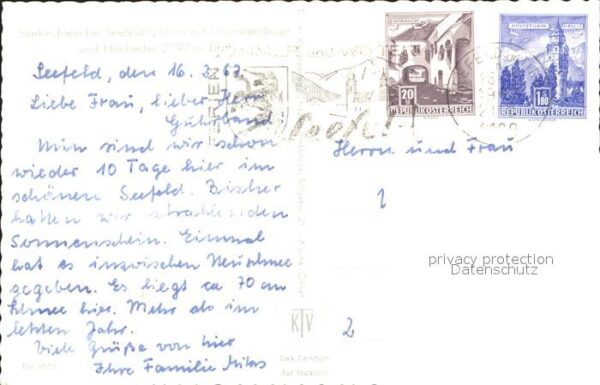 Seekirchlein bei Seefeld (1200 m) mit Gschwandkopf
und Hocheder 2797 m Tirol
SOMMER und WINTER
Seefeld, den 16.2.67
Liebe Frau, lieber Herr
Guhrband
Nun sind wir schon
wieder 10 Tage hier im
schönen Seefeld. Bisher
hatten wir strahlenden
Sonnenschein. Einmal
hat es inzwischen Neuschnee
gegeben. Es liegt ca 70 cm
Schnee hier. Mehr als im
letzten Jahr.
Viele Grüße von hier
Ihre Familie
20
REPUBLIK ÖSTERREICH
1.80
REPUBLIK ÖSTERREICH
Seefeld
Herrn und Frau
1
2
privacy protection
Datenschutz
KTV
Das Zeichen
für Qualität